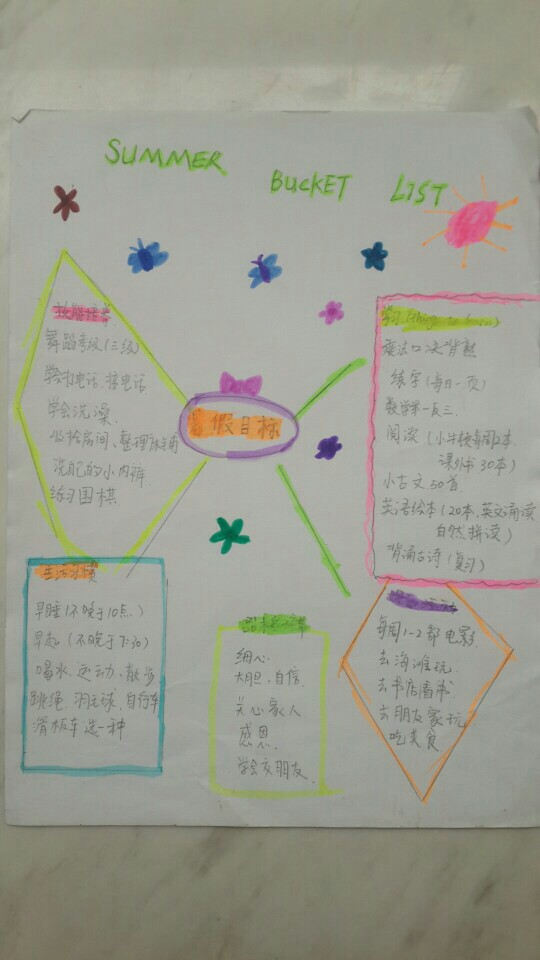 SUMMER BUCKET LIST
暑假目标
技能培养
舞蹈考级(三级)
学会打电话、接电话
学会洗澡
收拾房间、整理
洗自己的小内裤
练习围棋
学习(things to learn)
乘法口决背熟
练字(每日一页)
数学举一反三
阅读(小学校每周2本
课外书30本)
小古文50首
英语绘本(20本、英文诵读
自然拼读)
背诵古诗(复习)
生活习惯
早睡(不晚于10点.)
早起(不晚于7:30)
喝水、运动、散步
跳绳 羽毛球、自行车
滑板车 选一种
细心
大胆、自信
关心家人
感恩
学会交朋友
每周1-2部电影
去海滩玩
去书店看书
去朋友家玩
吃美食